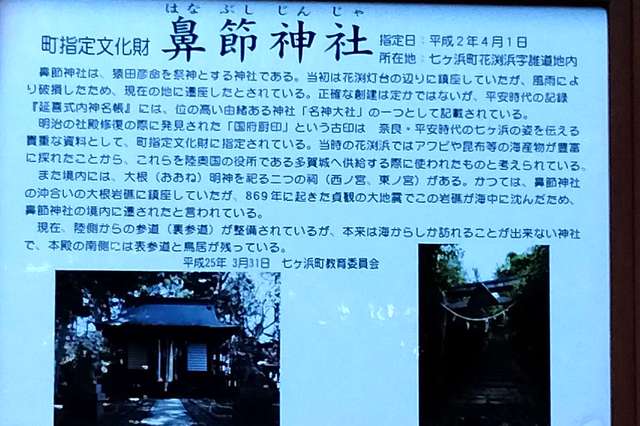 はなぶしじんじゃ
町指定文化財 鼻節神社 指定日：平成2年4月1日
所在地：七ヶ浜町花渕浜字誰道地内
鼻節神社は、猿田彦命を祭神とする神社である。当初は花渕灯台の辺りに鎮座していたが、風雨によ
り破損したため、現在の地に遷座したとされている。正確な創建は定かではないが、平安時代の記録
『延喜式内神名帳』には、位の高い由緒ある神社「名神大社」の一つとして記載されている。
明治の社殿修復の際に発見された「国府厨印」という古印は　奈良・平安時代の七ヶ浜の姿を伝える
貴重な資料として、町指定文化財に指定されている。当時の花渕浜ではアワビや昆布等の海産物が豊富
に採れたことから、これらを陸奥国の役所である多賀城へ供給する際に使われたものと考えられている。
また境内には、大根（おおね）明神を祀る二つの祠（西ノ宮、東ノ宮）がある。かつては、鼻節神社
の沖合いの大根岩礁に鎮座していたが、869年に起きた貞観の大地震でこの岩礁が海中に沈んだため、
鼻節神社の境内に遷されたと言われている。
現在、陸側からの参道（裏参道）が整備されているが、本来は海からしか訪れることが出来ない神社
で、本殿の南側には表参道と鳥居が残っている。
平成25年 3月31日　七ヶ浜町教育委員会